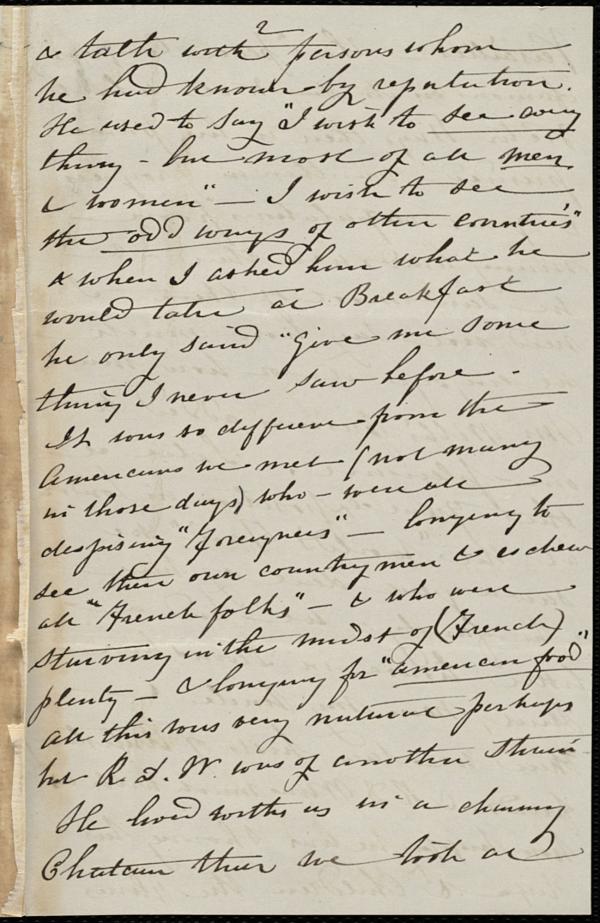 2
& talk with persons whom
he had known by reputation.
He used to say "I wish to see every
thing - but most of all men
& women" — I wish to see
the odd ways of other countries"
& when I asked him what he
would take at Breakfast
he only said "Give me some
thing I never saw before -
It was so different from the
Americans we met (not many
in those days) who - were all
despising "foreigners" — longing to
see their own countrymen & eschew
all "French folks" — & who were
starving in the midst of (French)
plenty — & longing for "american food"
all this was very natural perhaps
but R. I. W. was of another strain
He lived with us in a charming
Chateau then we took at